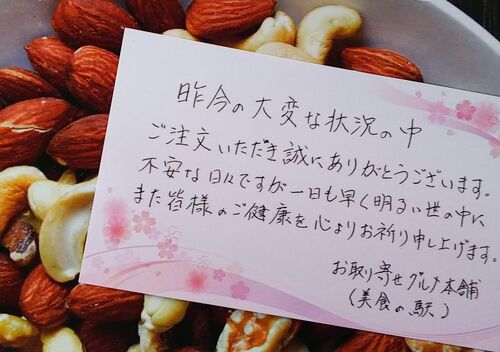 昨今の大変な状況の中
ご注文いただき誠にありがとうございます。
不安な日々ですが一日も早く明るい世の中に
また皆様のご健康を心よりお祈り申し上げます。
お取り寄せグルメ本舗
(美食の駅)